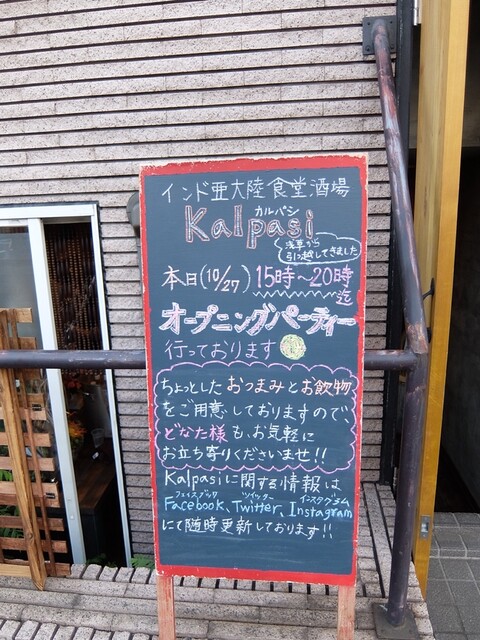 インド亜大陸食堂酒場
カルパシ
Kalpasi
浅草から
引っ越してきました
本日(10/27) 15時~20時迄
オープニングパーティー
行っております
ちょっとしたおつまみとお飲物
をご用意しておりますので、
どなた様も、お気軽に
お立ち寄りくださいませ!!
Kalpasiに関する情報は
フェイスブック ツイッター インスタグラム
Facebook、Twitter、Instagram
にて随時更新しております!!